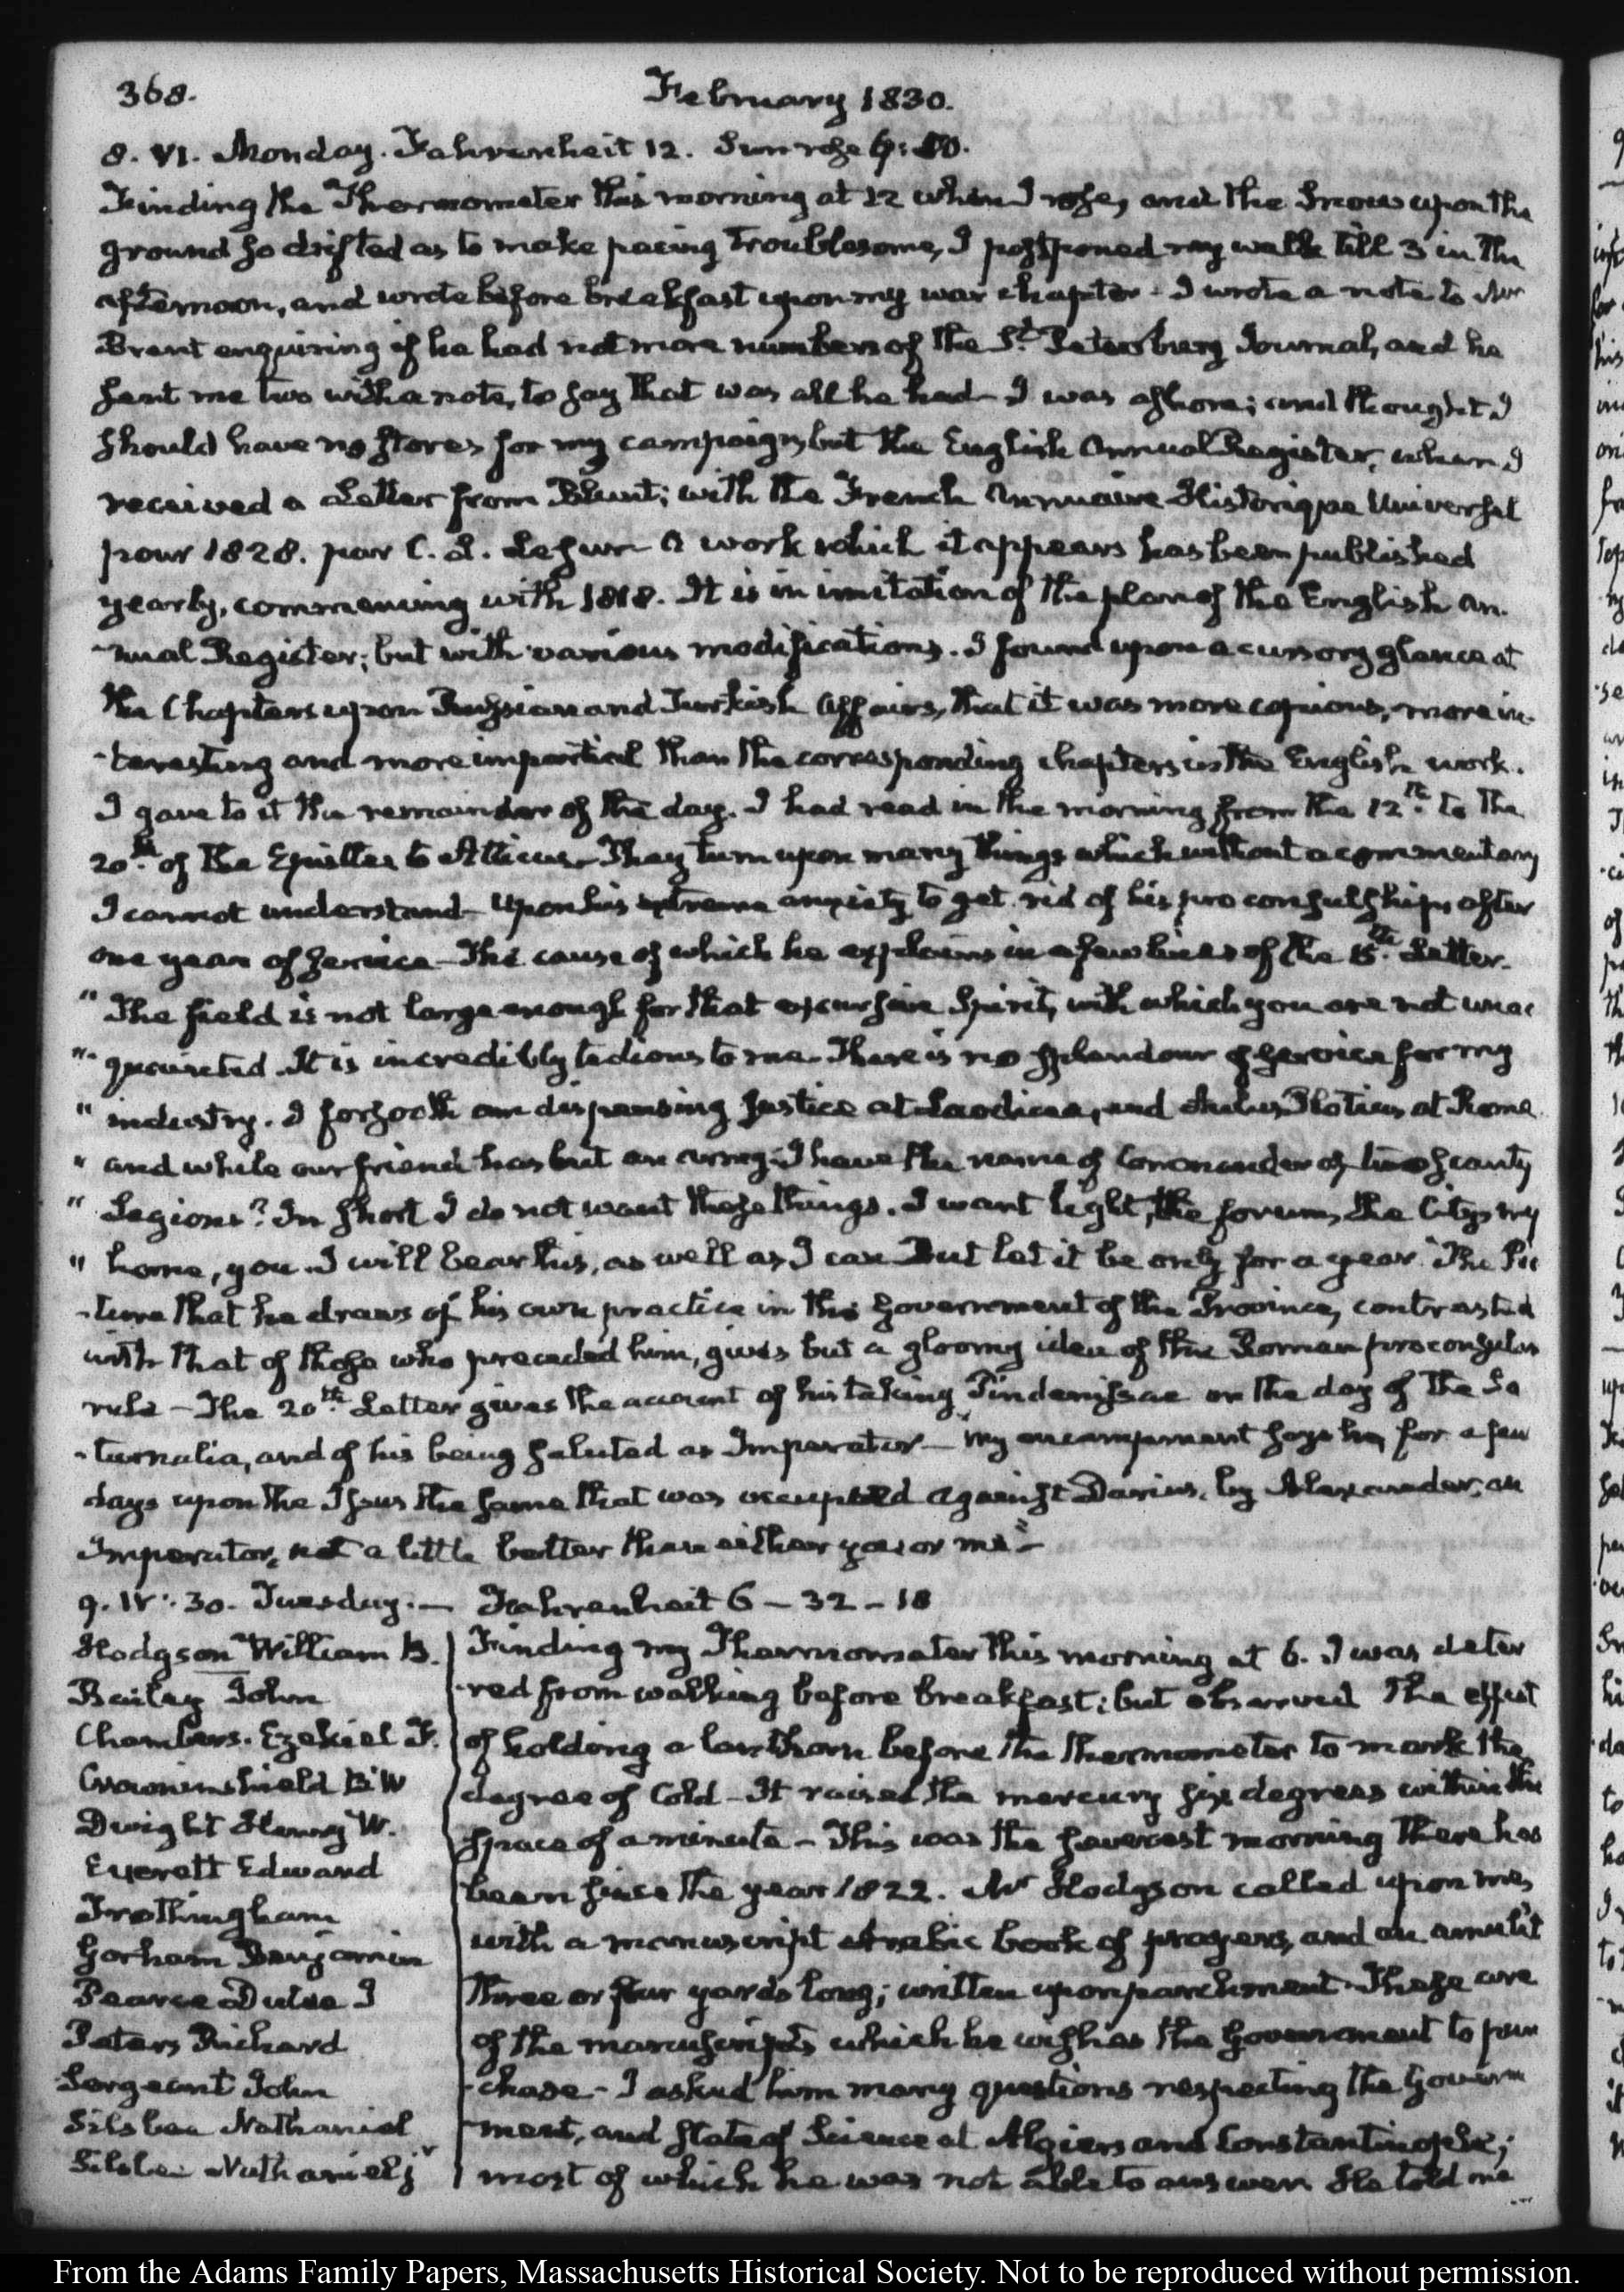 368.
February 1830.
8. VI. Monday. Fahrenheit 12. Sun rose 6:50.
Finding the Thermometer this morning at 12 when I rose, and the Snow upon the
ground so drifted as to make pacing troublesome, I postponed my walk till 3 in the
afternoon, and wrote before breakfast upon my war chapter - I wrote a note to Mr
Brent enquiring if he had not more numbers of the St. Petersburg Journal, and he
sent me two with a note, to say that was all he had - I was ashore; and thought I
should have no stores for my campaign, but the English Annual Register, when I
received a Letter from Blunt; with the French Annuaire Historique Universel
pour 1828. par C. L. Lesur a work which it appears has been published
yearly, commencing with 1818. It is in imitation of the plan of the English An-
-nual Register; but with various modifications. I found upon a cursory glance at
the Chapters upon Russian and Turkish Affairs, that it was more copious, more in-
-teresting and more impartial than the corresponding chapters in the English work.
I gave to it the remainder of the day. I had read in the morning from the 12th. to the
20th. of the Epistles to Atticus - They turn upon many things which without a commentary
I cannot understand - Upon his extreme anxiety to get rid of his pro consulship after
one year of service - The cause of which he explains in a few lines of the 15th. Letter.
" The field is not large enough for that excursive Spirit, with which you are not unac
"- quainted. It is incredibly tedious to me. There is no splendour of service for my
" industry. I forsooth am dispensing justice at Laodicea, and Aulus Plotius at Rome
" and while our friend has but an army, I have the name of Commander of two scanty
" Legions? In short I do not want these things. I want light, the forum, the City, my
" home, you. I will bear this, as well as I can But let it be only for a year." The Pic
-ture that he draws of his own practice in the Government of the Province, contrasted
with that of those who preceded him, gives but a gloomy idea of the Roman proconsular
rule - The 20th. Letter gives the account of his taking Pindenissae on the day of the Sa
-turnalia, and of his being saluted as Imperator - "My encampment says he, for a few
days upon the Issus the same that was occupied against Darius, by Alexander, an
Imperator, not a little better than either you or me" -
9. IV: 30. Tuesday. - Fahrenheit 6 - 32 - 18
Hodgson William B.
Bailey John
Chambers. Ezekiel F.
Crowninshield B W
Dwight Henry W.
Everett Edward
Frothingham
Gorham Benjamin
Pearce Dutee J
Peters Richard
Sergeant John
Silsbee Nathaniel
Silsbee Nathaniel jr
Finding my Thermometer this morning at 6. I was deter
-red from walking before breakfast; but observed the effect
of holding a lanthorn before the thermometer to mark the
degree of Cold - It raised the mercury six degrees within the
space of a minute - This was the severest morning there has
been since the year 1822. Mr Hodgson called upon me,
with a manuscript Arabic book of prayers, and an amulet
three or four yards long; written upon parchment. These are
of the manuscripts which he wishes the Government to pur
-chase - I asked him many questions respecting the Govern
-ment, and State of Science at Algiers and Constantinople;
most of which he was not able to answer. He told me
From the Adams Family Papers, Massachusetts Historical Society. Not to be reproduced without permission.